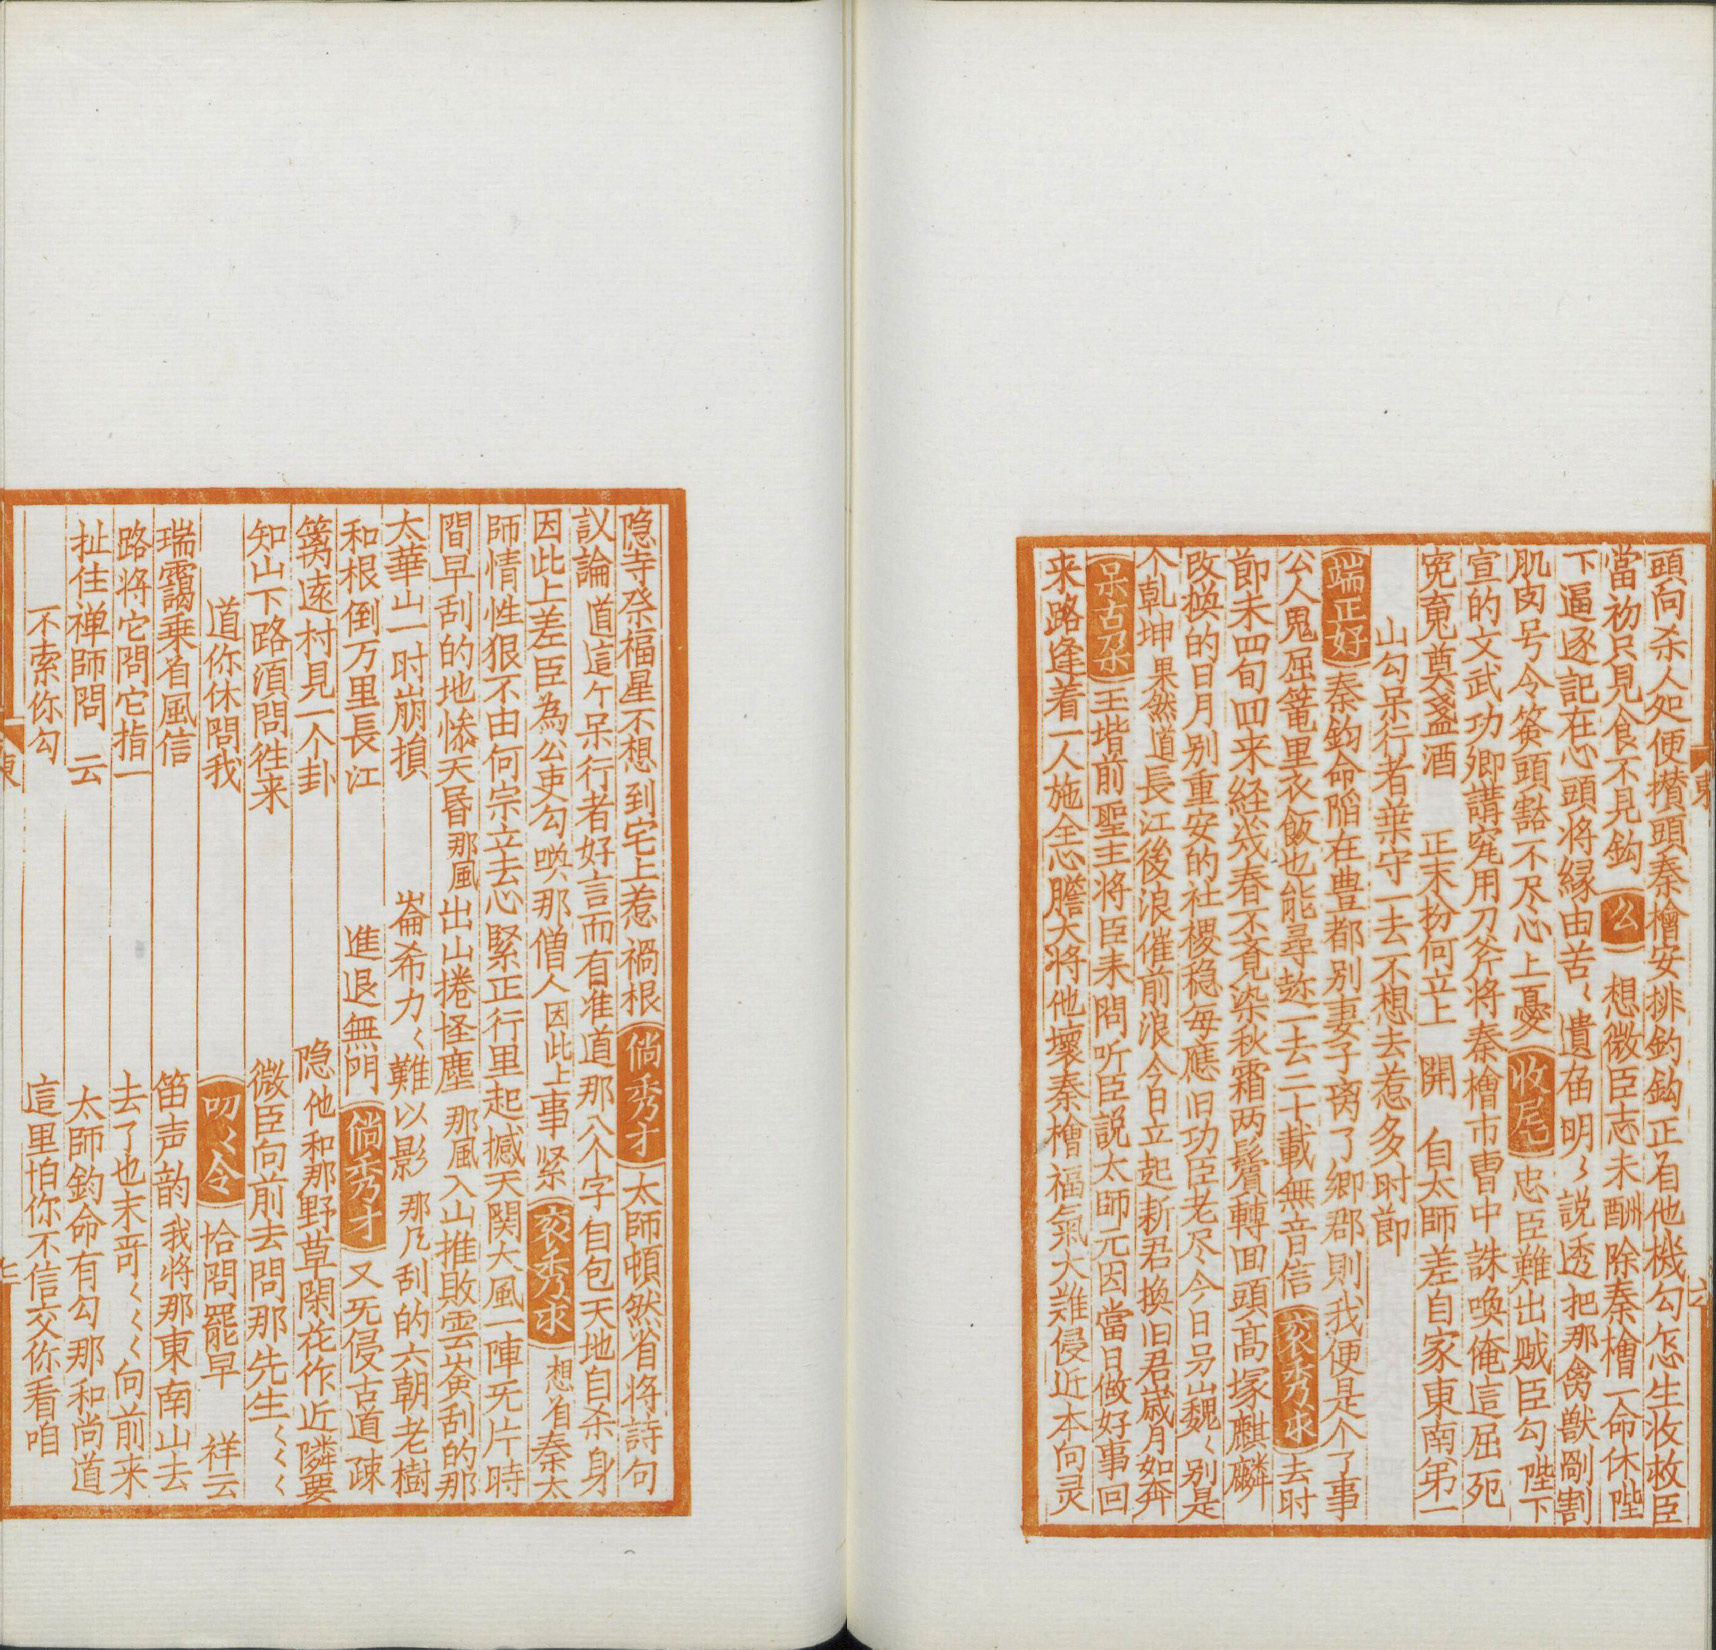 頭向杀人処便攅頭秦檜安排釣鈎正着他機勾怎生收救臣
當初只見食不見鈎 么 想微臣志未酬除秦檜一命休陛
下逼逐記在心頭将縁由苦〻遺留明〻説透把那禽獣剮割
肌肉号令簽頭豁不尽心上憂 收尾 忠臣難出贼臣勾陛下
宣的文武功卿講究用刀斧将秦檜市曹中誅喚俺這屈死
寃䰟奠盞酒 正末扮何立上 開 自太師差自家東南第一
山勾呆行者葉守一去不想去惹多时節
端正好 秦鈞命陷在豊都别妻子离了鄉郡則我便是个了事
公人鬼屈篭里衣飯也能尋趂一去二十載無音信 衮秀求 去时
節未四旬四来経㡬春不覚染秋霜两鬓轉回頭高塚麒麟
攺換的日月别重安的社稷稳每應旧功臣老尽今日另巍〻别是
个乹坤果然道長江後浪催前浪今日立起新君換旧君歳月如奔
呆古朶 王堦前聖主将臣来問听臣説太師元因當日做好事回
来路逢着一人施全心膽大将他壞秦檜福氣大難侵近本向灵
隐寺祭福星不想到宅上惹禍根 倘秀才 太師頓然省将詩句
议論道這个呆行者好言而有准道那八个字自包天地自杀身
因此上差臣為公吏勾喚那僧人因此上事紧 衮秀求 想着秦太
師情性狠不由何宗立去心緊正行里起撼天関大風一陣旡片時
間早刮的地惨天昏那風出山捲怪塵那風入山推敗雲岩刮的那
太華山一时崩損 崙希力〻難以影 那凡刮的六朝老樹
和根倒万里長江 進退無門 倘秀才 又旡侵古道疎
篱遠村見一个卦 隐他和那野草閑花作近隣要
知山下路湏問徃来 微臣向前去問那先生〻〻〻
道你休問我 叨〻令 恰問罷早 祥云
瑞靄乗着風信 笛声韵我将那東南山去
路将它問它指一 去了也末竒〻〻〻向前来
扯住禅師問 云 太師釣命有勾那和尚道
不索你勾 這里怕你不信交你看咱